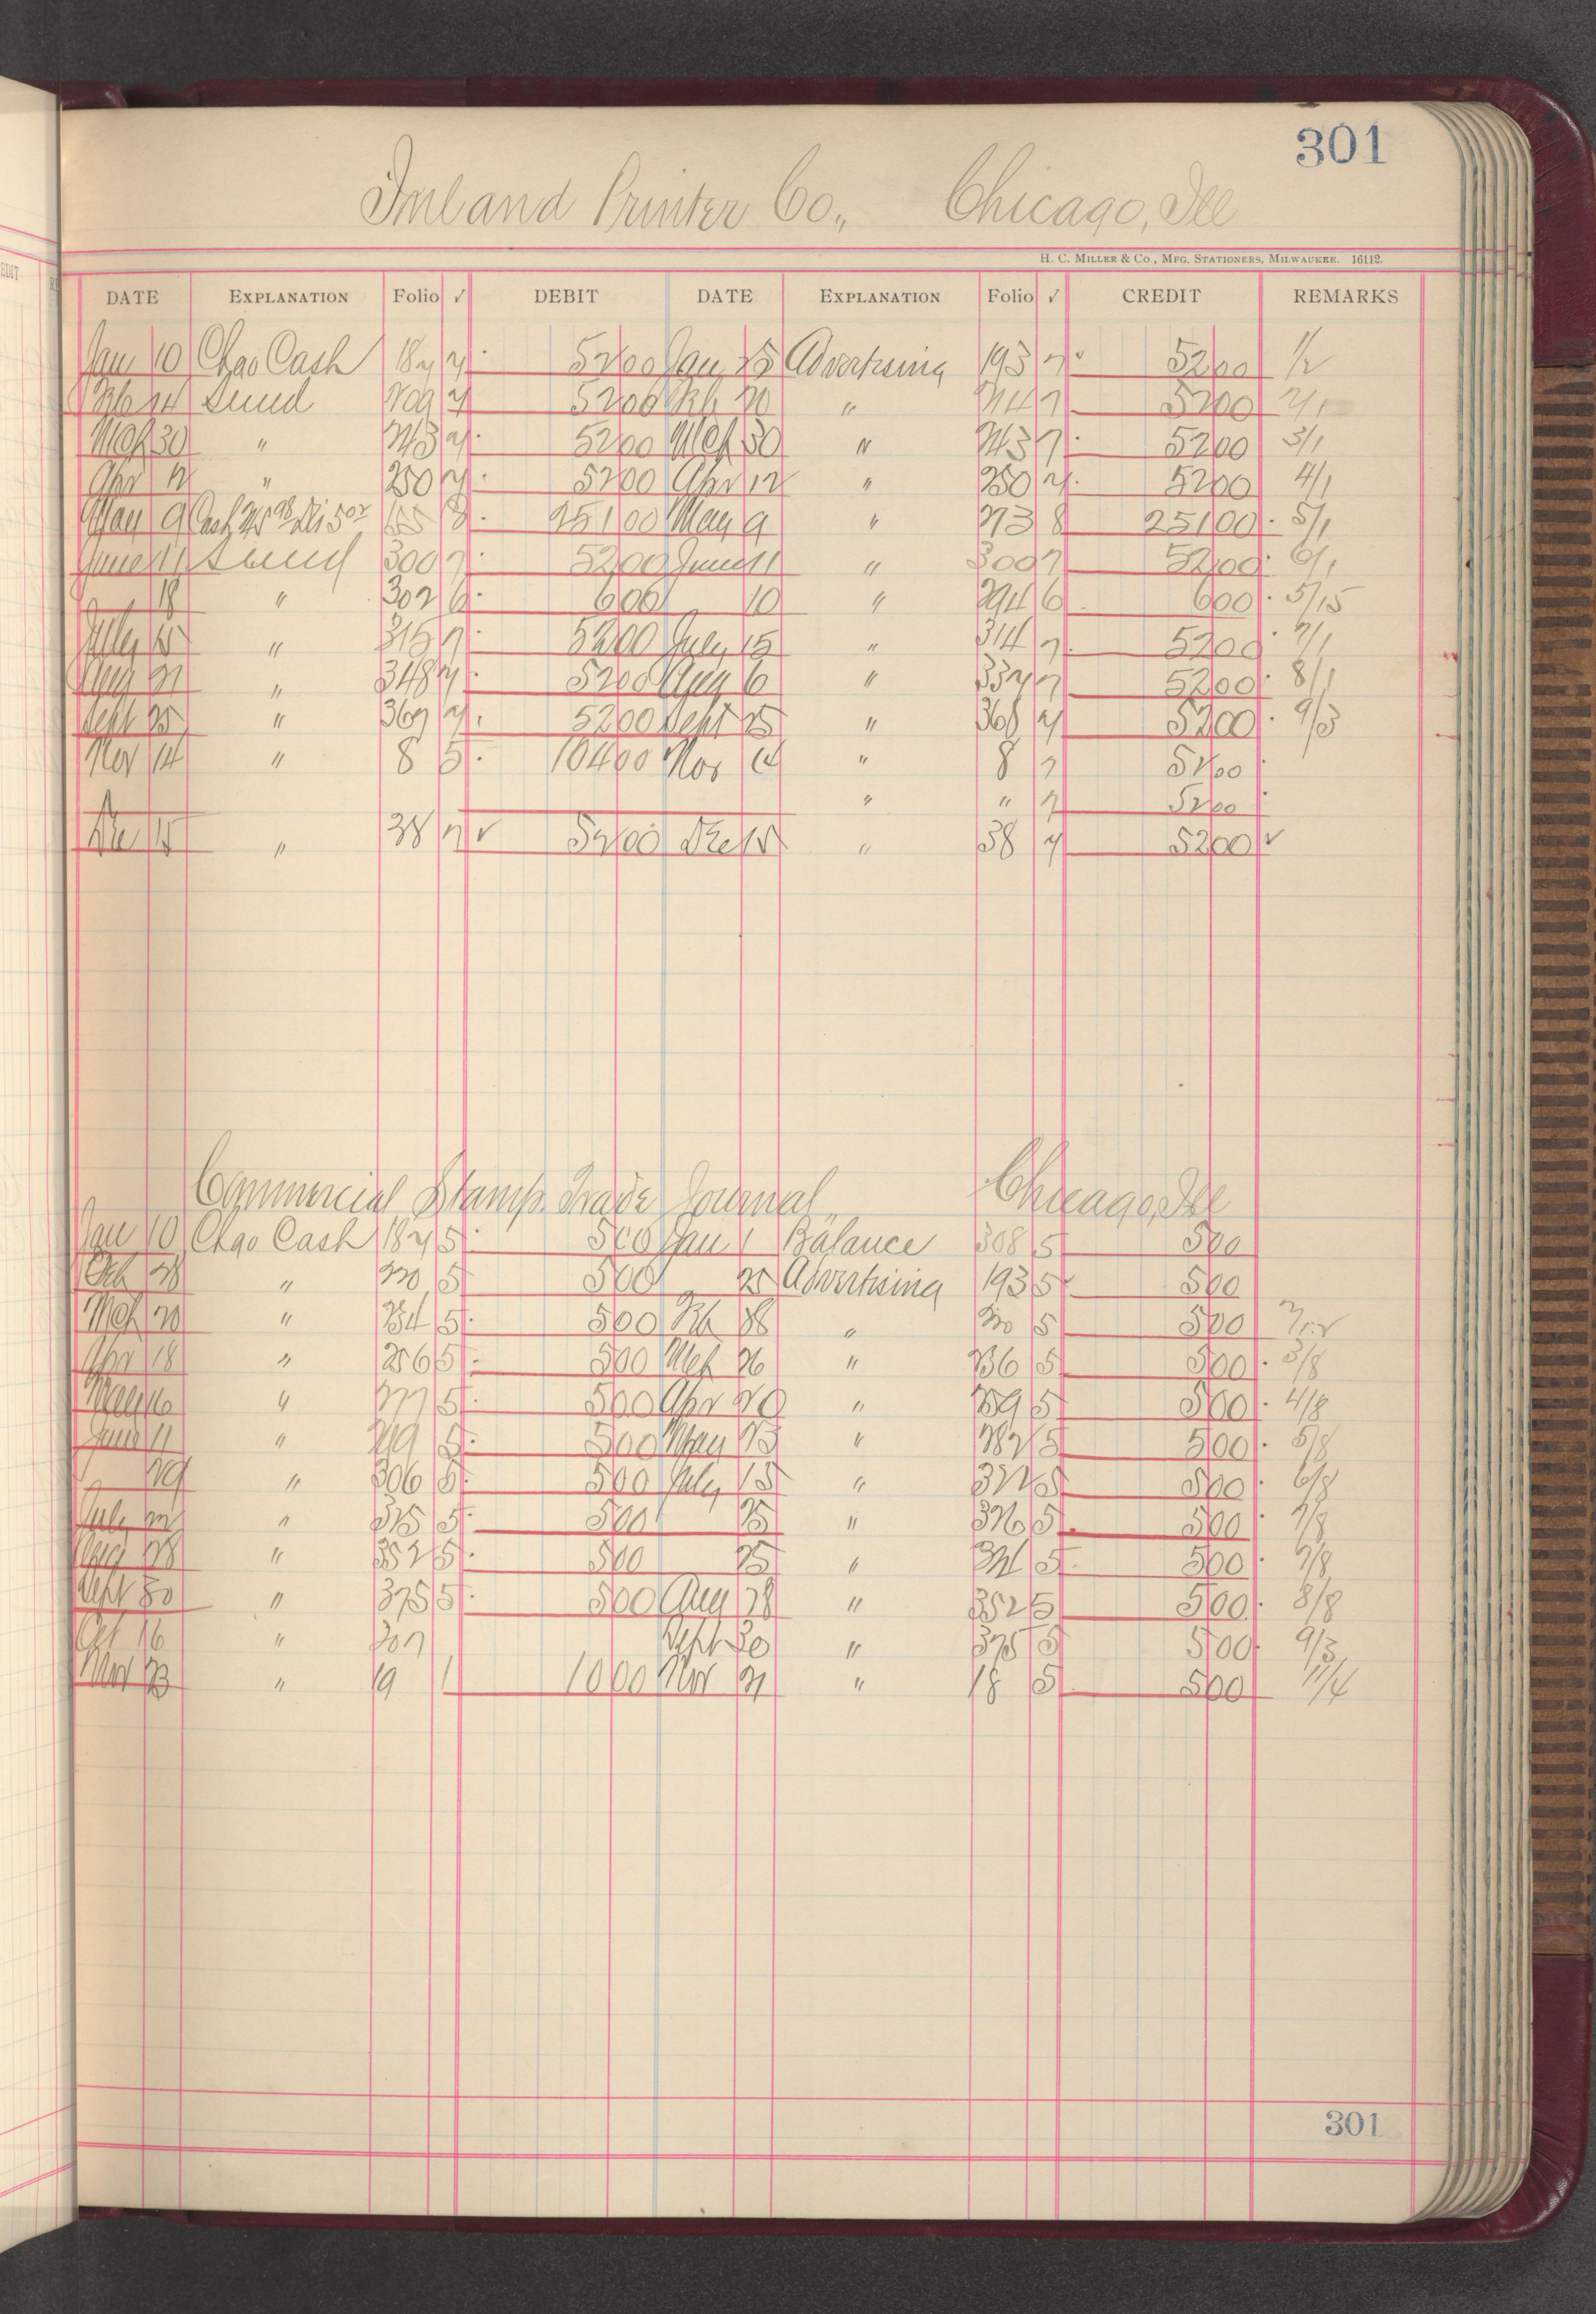 301
Inland Printer Co., Chicago, Ill
H. C. Miller & Co., Mfg. Stationers, Milwaukee. 16112.
DATE Explanation Folio ✓ DEBIT DATE Explanation Folio ✓ CREDIT REMARKS
Jan 10 Chgo Cash 187 7 5200 Jan 25 Advertising 193 7 5200 1/2
Feb 14 Sund 209 7 5200 Feb 20 " 214 7 5200 2/1
Mch 30 " 243 7 5200 Mch 30 " 243 7 5200 3/1
Apr 12 " 250 7 5200 Apr 12 " 250 7 5200 4/1
May 9 Cash 8 25100 May 9 " 273 8 25100 5/1
June 11 Sund 300 7 5200 June 11 " 300 7 5200 6/1
18 " 302 6 600 10 " 294 6 600 5/15
July 15 " 315 7 5200 July 15 " 314 7 5200 7/1
Aug 21 " 348 7 5200 Aug 6 " 337 7 5200 8/1
Sept 25 " 367 7 5200 Sept 25 " 368 7 5200 9/3
Nov 14 " 8 5 10400 Nov 14 " 8 7 5200
" " 7 5200
Dec 15 " 38 7 ✓ 5200 Dec 15 " 38 7 5200 ✓
Commercial Stamp Trade Journal, Chicago, Ill
Jan 10 Chgo Cash 187 5 500 Jan 1 Balance 308 5 500
Feb 28 " 220 5 500 25 Advertising 193 5 500
Mch 20 " 234 5 500 Feb 28 " 220 5 500
Apr 18 " 256 5 500 Mch 26 " 236 5 500 3/8
May 16 " 277 5 500 Apr 20 " 259 5 500 4/8
June 11 " 5 500 May 23 " 282 5 500 5/8
29 " 306 5 500 July 15 " 322 5 500 6/8
July 22 " 325 5 500 25 " 326 5 500 7/8
Aug 28 " 352 5 500 25 " 5 500 7/8
Sept 30 " 375 5 500 Aug 28 " 352 5 500 8/8
Oct 16 " Sept 30 " 375 5 500 9/3
Nov 23 " 19 1 1000 Nov 21 " 18 5 500 11/4
301